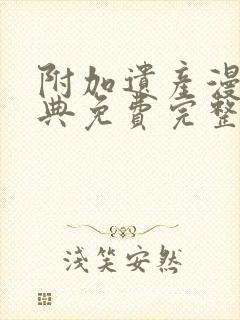 附加遺產漫
典免費完整
淺笑安然